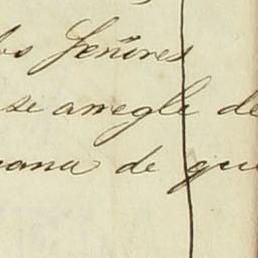 los Señores
se arregle de
ana de que